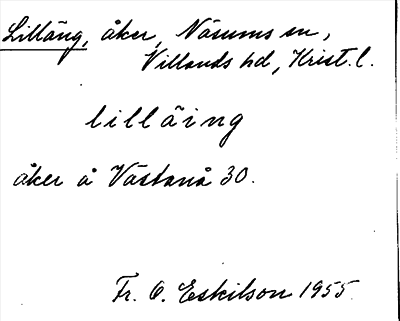 Lilläng, åker, Näsums sn,
Villands hd, Krist. l.
lilläing
åker å Västanå 30.
Fr. O. Eskilson 1955.